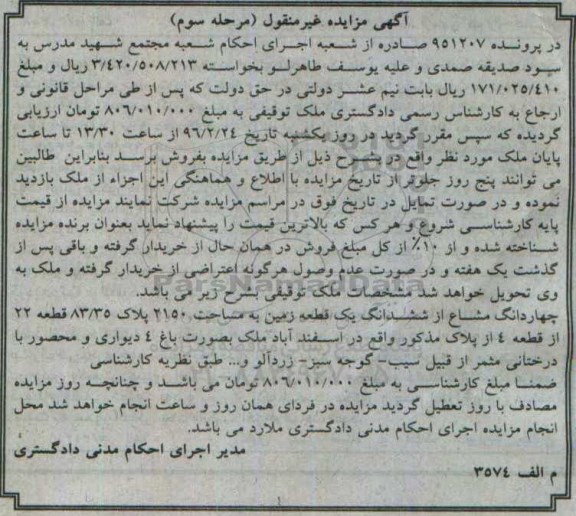 آگهی مزایده غیرمنقول (مرحله سوم)
در پرونده ۹۵۱۲۰۷ صادره از شعبه اجرای احکام شعبه مجتمع شهید مدرس به
سود صدیقه صمدی و علیه یوسف طاهرلو بخواسته ۳/۴۲۰/۵۰۸/۲۱۳ ریال و مبلغ
۱۷۱/۰۲۵/۴۱۰ ریال بابت نیم عشر دولتی در حق دولت که پس از طی مراحل قانونی و
ارجاع به کارشناس رسمی دادگستری ملک توقیفی به مبلغ ۸۰۶/۰۱۰/۰۰۰ تومان ارزیابی
گردیده که سپس مقرر گردید در روز یکشنبه تاریخ ۹۶/۲/۲۴ از ساعت ۱۳/۳۰ تا ساعت
پایان ملک مورد نظر واقع در بشرح ذیل از طریق مزایده بفروش برسد بنابراین طالبین
می توانند پنج روز جلوتر از تاریخ مزایده با اطلاع و هماهنگی این اجراء از ملک بازدید
نموده و در صورت تمایل در تاریخ فوق در مراسم مزایده شرکت نمایند مزایده از قیمت
پایه کارشناسی شروع و هر کس که بالاترین قیمت را پیشنهاد نماید بعنوان برنده مزایده
شناخته شده و از ۱۰٪ از کل مبلغ فروش در همان حال از خریدار گرفته و باقی پس از
گذشت یک هفته و در صورت عدم وصول هرگونه اعتراضی از خریدار گرفته و ملک به
وی تحویل خواهد شد مشخصات ملک توقیفی بشرح زیر می باشد.
چهاردانگ مشاع از ششدانگ یک قطعه زمین به مساحت ۲۱۵۰ پلاک ۸۳/۳۵ قطعه ۲۲
از قطعه ۴ از پلاک مذکور واقع در اسفند آباد ملک بصورت باغ ۴ دیواری و محصور با
درختانی مثمر از قبیل سیب- گوجه سبز- زردآلو و... طبق نظریه کارشناسی
ضمنا مبلغ کارشناسی به مبلغ ۸۰۶/۰۱۰/۰۰۰ تومان می باشد و چنانچه روز مزایده
مصادف با روز تعطیل گردید مزایده در فردای همان روز و ساعت انجام خواهد شد محل
انجام مزایده اجرای احکام مدنی دادگستری ملارد می باشد.
مدیر اجرای احکام مدنی دادگستری
م الف ۳۵۷۴
ParsNamadData